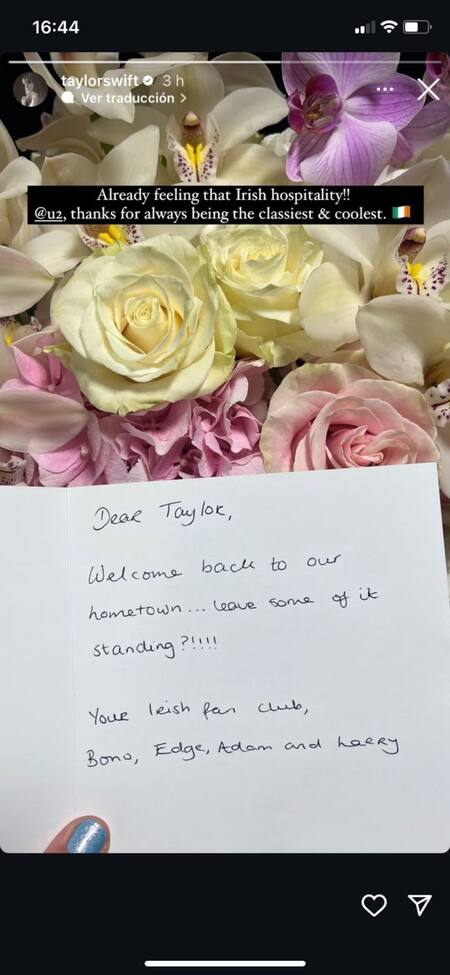 16:44
taylorswift 3 h
Ver traducción >
Already feeling that Irish hospitality!!
@u2, thanks for always being the classiest & coolest. 🇮🇪
Dear Taylor,
Welcome back to our
hometown... leave some of it
standing?!!!!
Your Irish fan club,
Bono, Edge, Adam and Larry